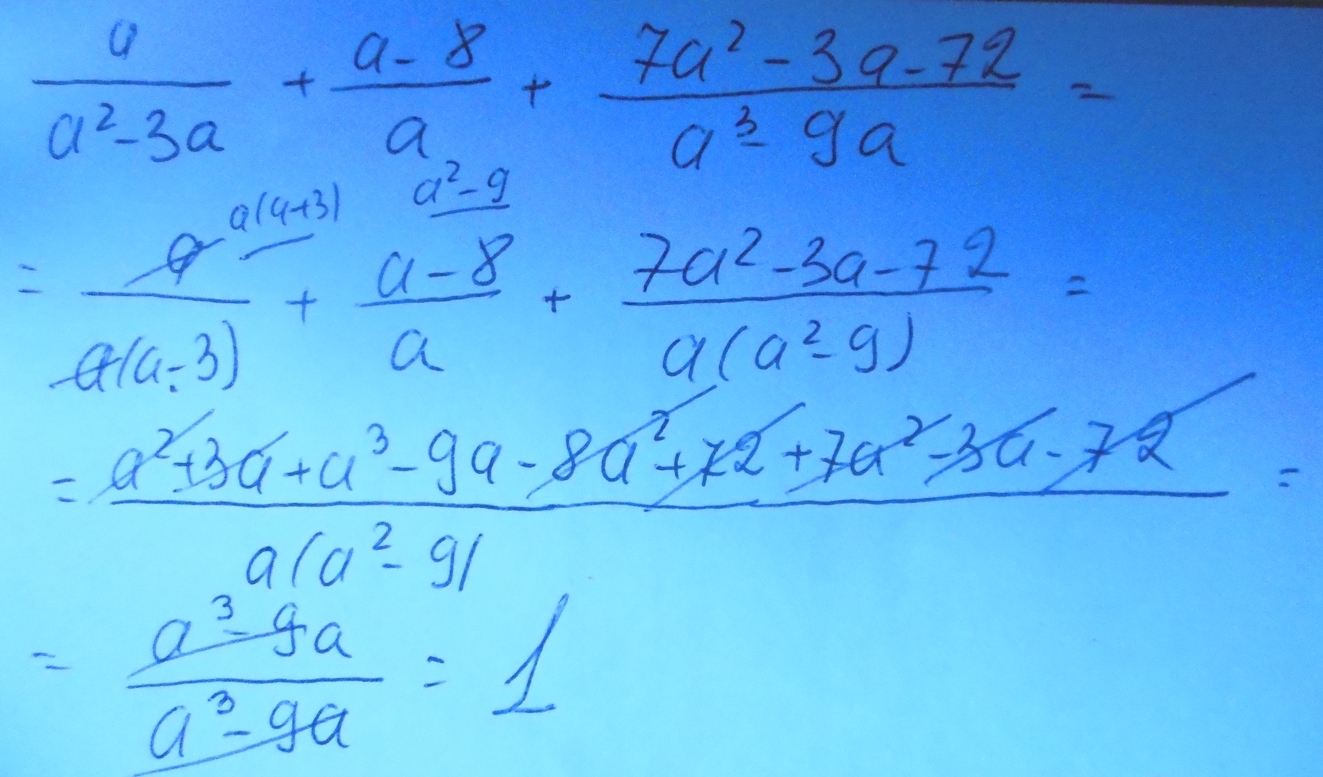 a/(a²-3a) + (a-8)/a + (7a²-3a-72)/(a³-9a) =
a(a+3) a²-9
= a/(a(a-3)) + (a-8)/a + (7a²-3a-72)/(a(a²-9)) =
= (a²+3a+a³-9a-8a²+72+7a²-3a-72)/(a(a²-9)) =
= (a³-9a)/(a³-9a) = 1